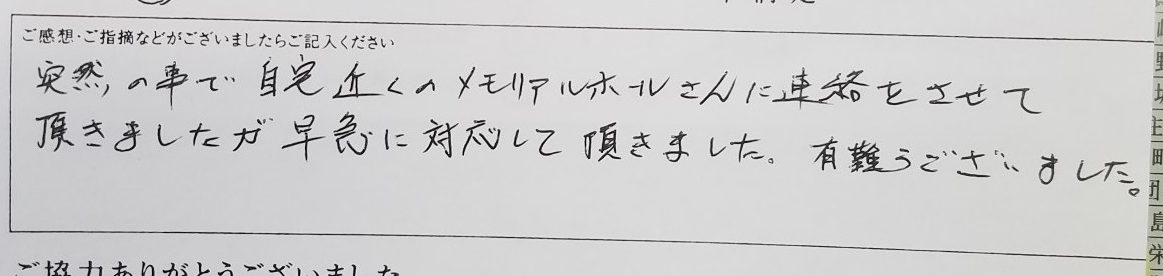 ご感想・ご指摘などがございましたらご記入ください
突然,の事で自宅近くのメモリアルホールさんに連絡をさせて
頂きましたが早急に対応して頂きました。有難うございました。
ご協力ありがとうございました